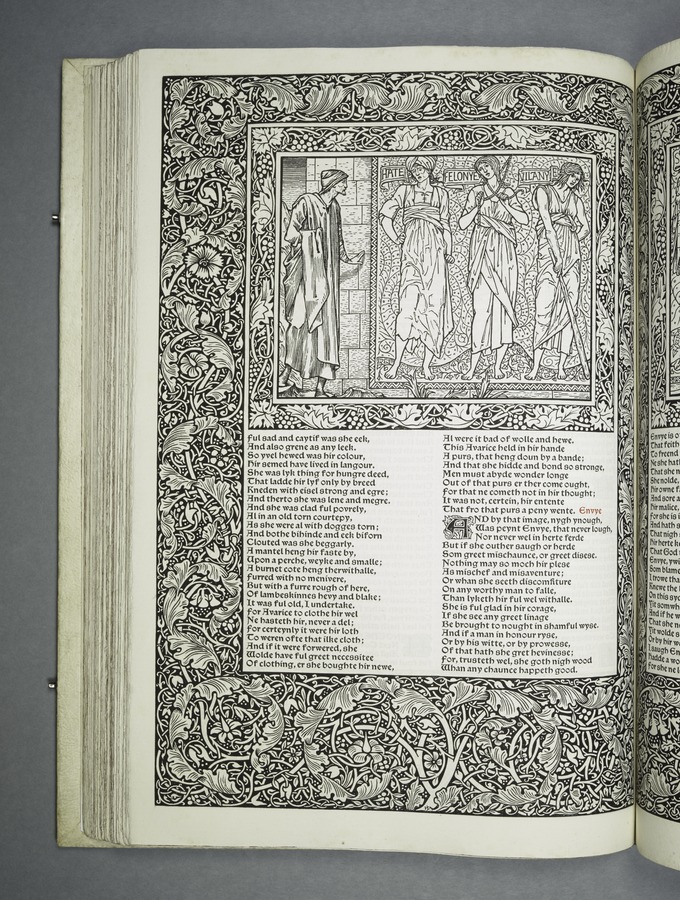 HATE
FELONYE
VILANYE
Ful sad and caytif was she eek,
And also grene as any leek.
So yvel hewed was hir colour,
Hir semed have lived in langour.
She was lyk thing for hungre deed,
That ladde hir lyf only by breed
Kneden with eisel strong and egre;
And therto she was lene and megre.
And she was clad ful povrely,
Al in an old torn courtepy,
As she were al with dogges torn;
And bothe bihinde and eek biforn
Clouted was she beggarly.
A mantel heng hir faste by,
Upon a perche, weyke and smalle;
A burnet cote heng therwithalle,
Furred with no menivere,
But with a furre rough of here,
Of lambeskinnes hevy and blake;
It was ful old, I undertake.
For Avarice to clothe hir wel
Ne hasteth hir, never a del;
For certeynly it were hir loth
To weren ofte that ilke cloth;
And if it were forwered, she
Wolde have ful greet necessitee
Of clothing, er she boughte hir newe,
Al were it bad of wolle and hewe.
This Avarice held in hir hande
A purs, that heng doun by a bande;
And that she hidde and bond so stronge,
Men must abyde wonder longe
Out of that purs er ther come ought,
For that ne cometh not in hir thought;
It was not, certein, hir entente
That fro that purs a peny wente. Envye
AND by that image, nygh ynough,
Was peynt Envye, that never lough,
Nor never wel in herte ferde
But if she outher saugh or herde
Som greet mischaunce, or greet disese.
Nothing may so moch hir plese
As mischief and misaventure;
Or whan she seeth discomfiture
On any worthy man to falle,
Than lyketh hir ful wel withalle.
She is ful glad in hir corage,
If she see any greet linage
Be brought to nought in shamful wyse.
And if a man in honour ryse,
Or by his witte, or by prowesse,
Of that hath she gret hevinesse;
For, trusteth wel, she goth nigh wood
Whan any chaunce happeth good.
Envye is
That feith